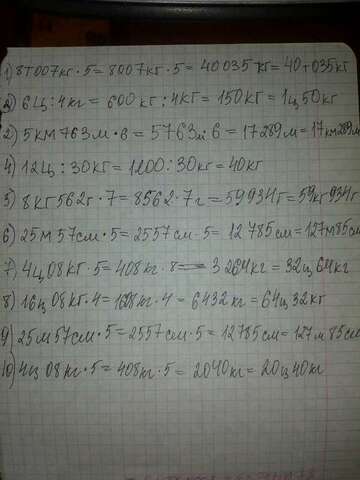 1) 8т007кг·5=8007кг·5=40035кг=40т035кг
2) 6ц:4кг=600кг:4кг=150кг=1ц50кг
2) 5км763м·6=5763м·6=17289м=17км289м
4) 12ц:30кг=1200:30кг=40кг
5) 8кг562г·7=8562·7г=59934г=59кг934г
6) 25м57см·5=2557см·5=12785см=127м85см
7) 4ц08кг·5=408кг·8=3264кг=32ц64кг
8) 16ц08кг·4=1608кг·4=6432кг=64ц32кг
9) 25м57см·5=2557см·5=12785см=127м85см
10) 4ц08кг·5=408кг·5=2040кг=20ц40кг